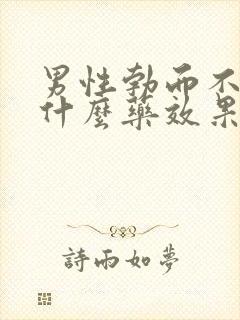 男性勃而不
什麼藥效果
詩雨如夢